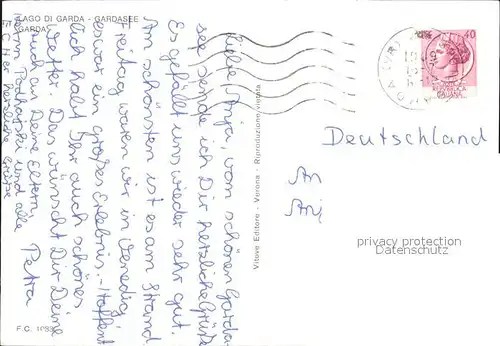 LAGO DI GARDA - GARDASEE
GARDA
Liebe Anja, vom schönen Garda-
see sende ich Dir herzliche Grüße
Es gefällt uns wieder sehr gut.
Am schönsten ist es am Strand.
Freitag waren wir in Venedig,
es war ein großes Erlebnis. - Hoffent
lich habt Ihr auch schönes
Wetter. Das wünscht Dir Deine
Petra
auch an Deine Eltern,
und alle
herzliche Grüße
Vitove Editore - Verona - Riproduzione vietata
F.C.
40
REPUBBLICA
ITALIANA
Deutschland
An
Anj
privacy protection
Datenschutz